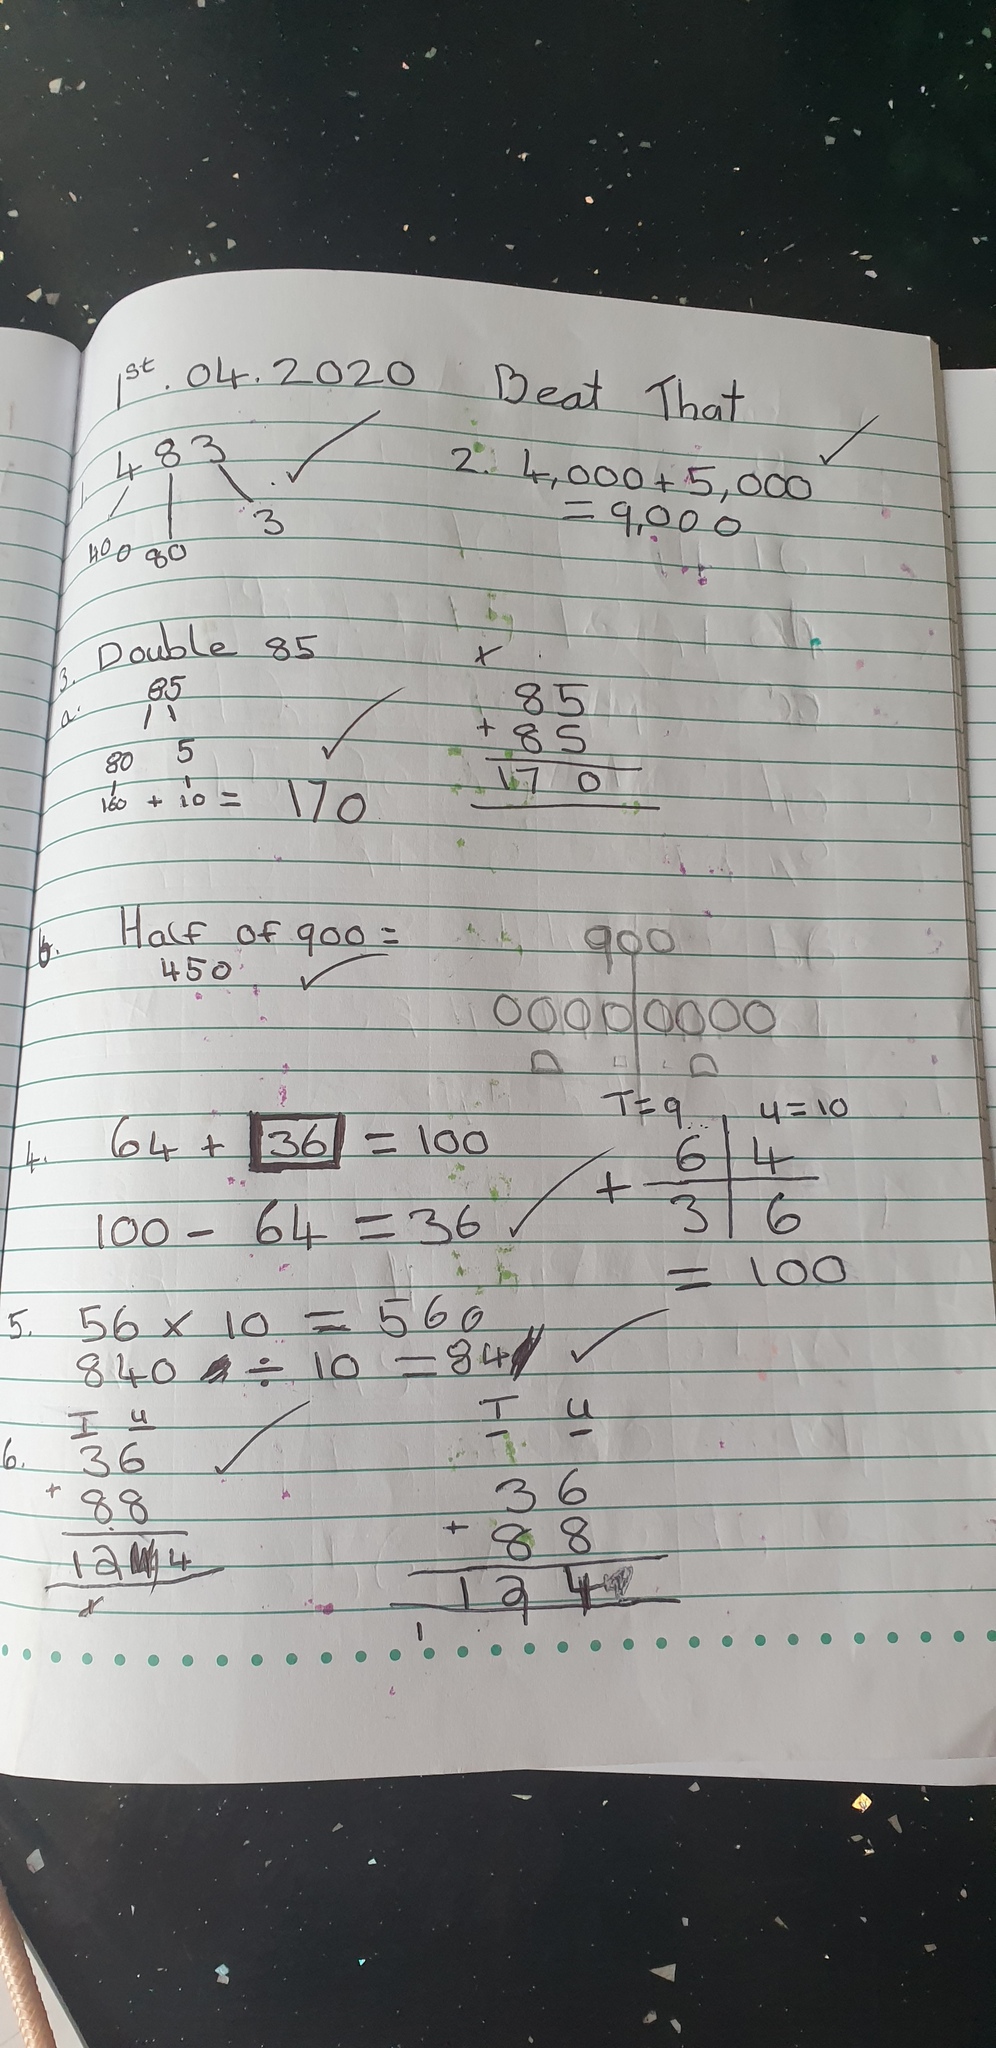 1st.04.2020 Beat That
1. 483
400 80 3
2. 4,000+5,000
=9,000
3. Double 85
a. 85
80 5
160 + 10 = 170
x
85
+ 85
170
b. Half of 900 =
450
900
0000 0000
4. 64 + 36 = 100
100 - 64 = 36
T=9 u=10
6 4
+ 3 6
= 100
5. 56 x 10 = 560
840 ÷ 10 = 84
6. T u
36
+ 88
124
x
T u
36
+ 88
124
1